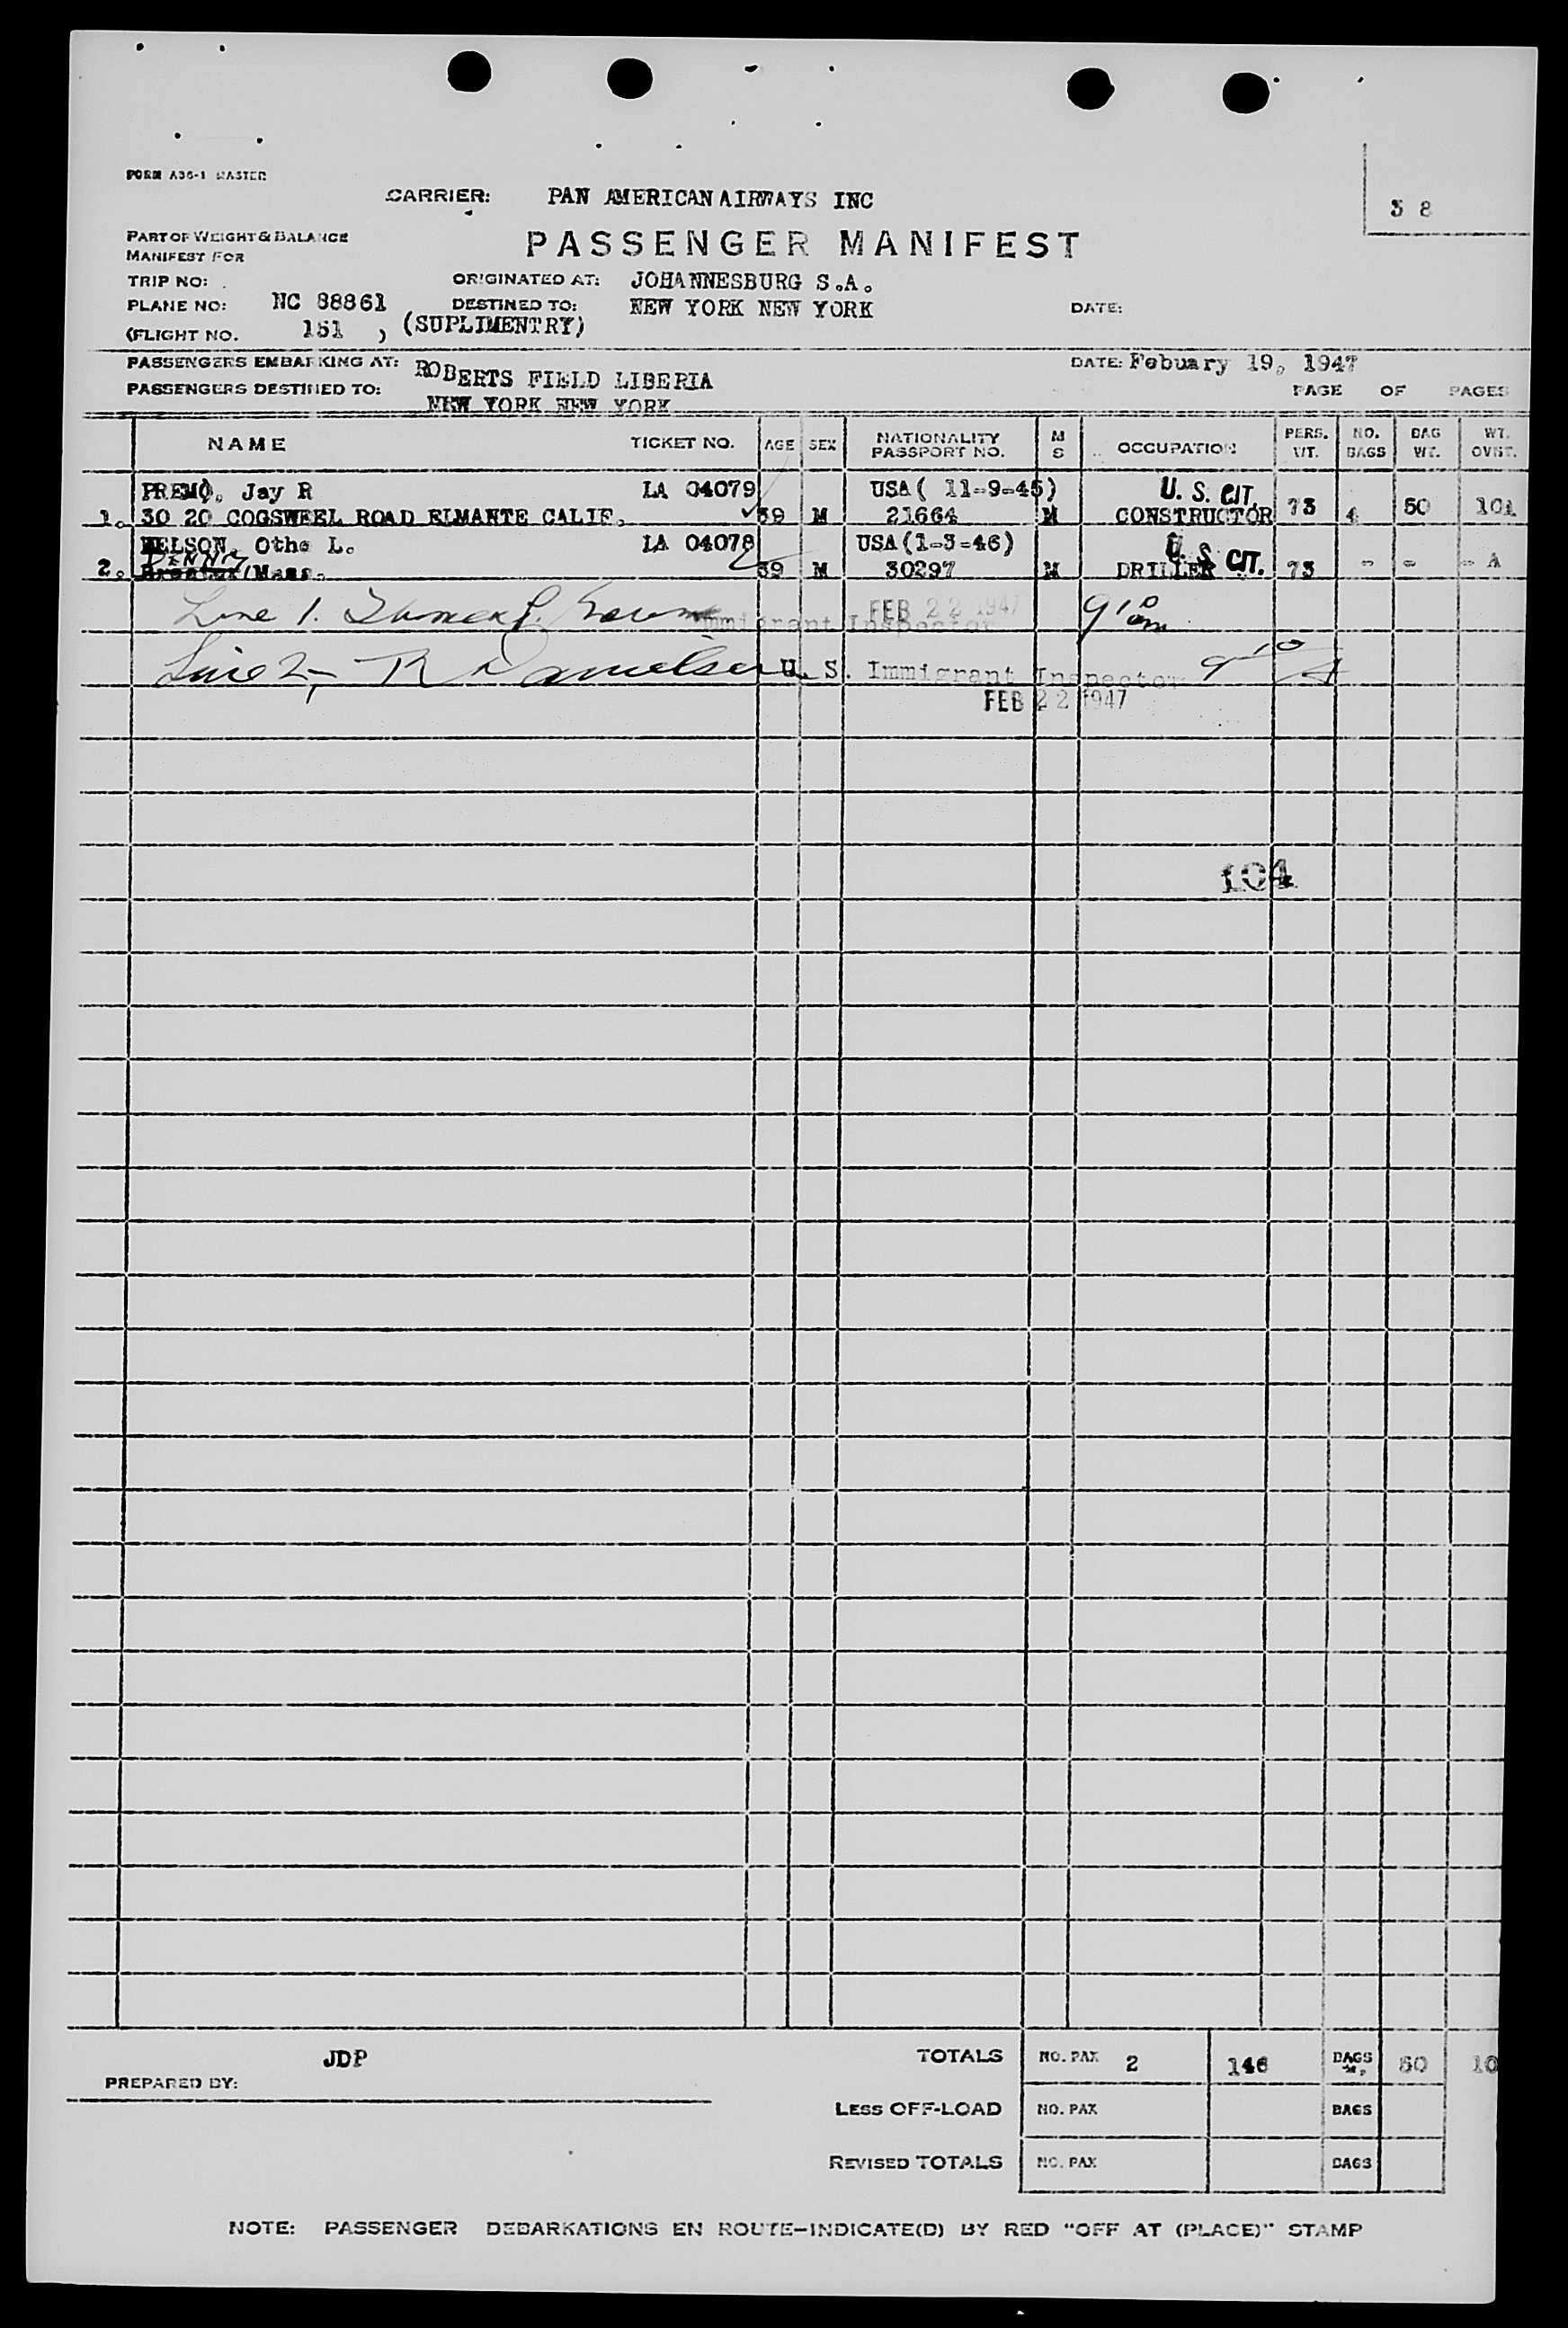 FORM A36-1 MASTER
CARRIER: PAN AMERICAN AIRWAYS INC
3 8
PART OF WEIGHT & BALANCE
MANIFEST FOR
PASSENGER MANIFEST
TRIP NO:
ORIGINATED AT: JOHANNESBURG S.A.
PLANE NO: NC 88861
DESTINED TO: NEW YORK NEW YORK
DATE:
(FLIGHT NO. 151 ) (SUPLIMENTRY)
PASSENGERS EMBARKING AT: ROBERTS FIELD LIBERIA
DATE: Febuary 19, 1947
PASSENGERS DESTINED TO: NEW YORK NEW YORK
PAGE OF PAGES
NAME TICKET NO. AGE SEX NATIONALITY PASSPORT NO. M S OCCUPATION PERS. WT. NO. BAGS BAG WT. WT. OVWT.
PREMO, Jay R LA 04079 USA ( 11-9-45) U. S. CIT.
1. 30 20 COGSWEEL ROAD ELMANTE CALIF. 39 M 21664 M CONSTRUCTOR 73 4 50 101
NELSON, Othe L. LA 04078 USA (1-3-46) U. S. CIT.
2. /Mass. 39 M 30297 M DRILLER 73 - - - A
Line 1. Immigrant Inspector FEB 22 1947 9 10 am
Line 2, R Danielsen U. S. Immigrant Inspector 9 10 A
FEB 22 1947
104
JDP
PREPARED BY:
TOTALS NO. PAX 2 146 BAGS 50 10
LESS OFF-LOAD NO. PAX BAGS
REVISED TOTALS NO. PAX BAGS
NOTE: PASSENGER DEBARKATIONS EN ROUTE-INDICATE(D) BY RED "OFF AT (PLACE)" STAMP